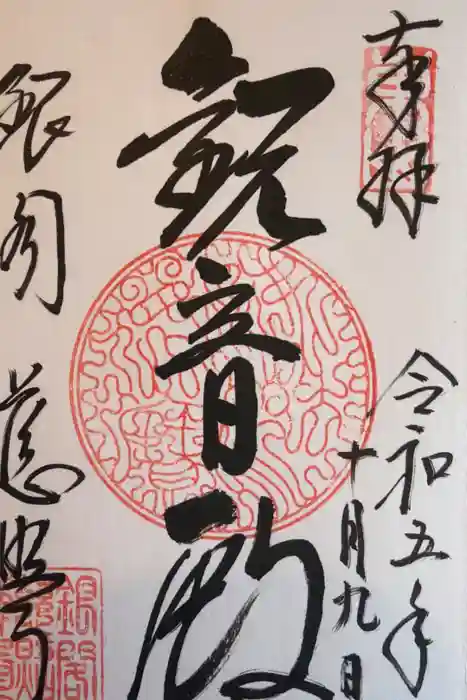 奉拝
令和五年
十月九日
観音殿
銀閣
慈照寺